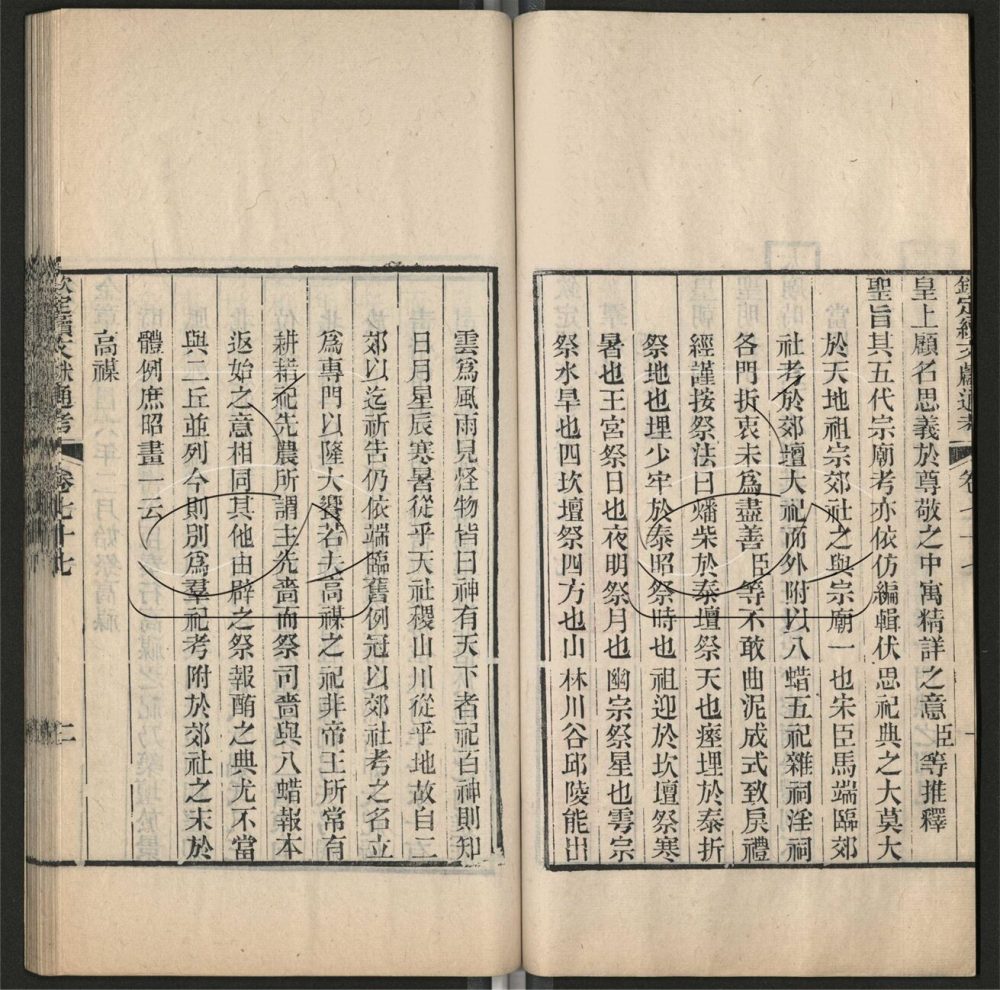 欽定續文獻通考 卷七十七
皇上顧名思義於尊敬之中寓精詳之意臣等推釋
聖旨其五代宗廟考亦依仿編輯伏思祀典之大莫大
於天地祖宗郊社之與宗廟一也宋臣馬端臨郊
社考於郊壇大祀而外附以八蜡五祀雜祠淫祠
各門折衷未為盡善臣等不敢曲泥成式致戾禮
經謹按祭法曰燔柴於泰壇祭天也瘞埋於泰折
祭地也埋少牢於泰昭祭時也祖迎於坎壇祭寒
暑也王宮祭日也夜明祭月也幽宗祭星也雩宗
祭水旱也四坎壇祭四方也山林川谷邱陵能出
雲為風雨見怪物皆曰神有天下者祀百神則知
日月星辰寒暑從乎天社稷山川從乎地故自二
郊以迄祈告仍依端臨舊例冠以郊社考之名立
為專門以隆大饗若夫高禖之祀非帝王所常有
耕耤祀先農所謂主先嗇而祭司嗇與八蜡報本
返始之意相同其他由辟之祭報酺之典尤不當
與二丘並列今則別為羣祀考附於郊社之末於
體例庶昭畫一云
高禖
欽定續文獻通考 卷七十七 二